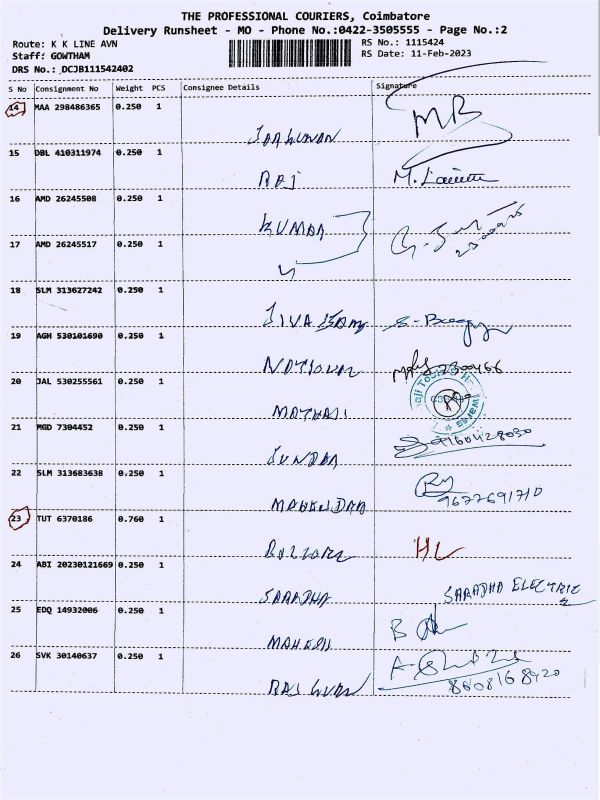 THE PROFESSIONAL COURIERS, Coimbatore
Delivery Runsheet - MO - Phone No.:0422-3505555 - Page No.:2
Route: K K LINE AVN RS No.: 1115424
Staff: GOWTHAM RS Date: 11-Feb-2023
DRS No.: DCJB111542402
S No Consignment No Weight PCS Consignee Details Signature
14 MAA 298486365 0.250 1 MB
15 DBL 410311974 0.250 1 RAJ
16 AMD 26245508 0.250 1 KUMAR
17 AMD 26245517 0.250 1
18 SLM 313627242 0.250 1
19 AGH 530101690 0.250 1 NATIONAL
20 JAL 530255561 0.250 1
21 MGD 7304452 0.250 1 SUNDRA 9160428030
22 SLM 313683638 0.250 1 MAHENDRA 9677691710
23 TUT 6370186 0.760 1 HL
24 ABI 20230121669 0.250 1 SARADHA SARADHA ELECTRIC
25 EDQ 14932006 0.250 1 MAHESH B
26 SVK 30140637 0.250 1 8608168920